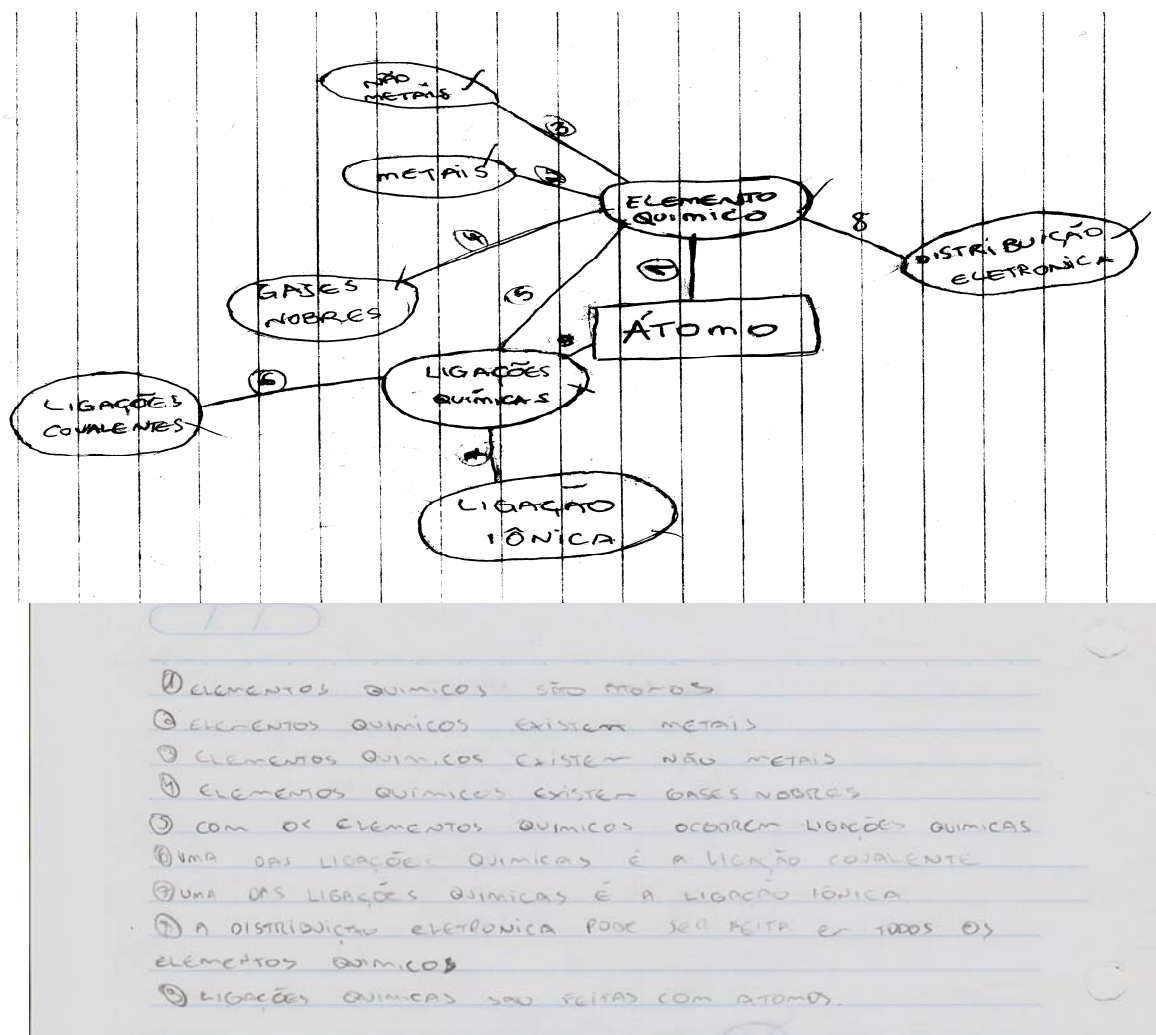 NÃO
METAIS
3
METAIS
2
ELEMENTO
QUIMICO
8
DISTRIBUIÇÃO
ELETRONICA
4
1
GASES
NOBRES
5
ÁTOMO
LIGAÇÕES
QUÍMICAS
6
LIGAÇÕES
COVALENTES
7
LIGAÇÃO
IÔNICA
1 ELEMENTOS QUIMICOS SÃO ATOMOS
2 ELEMENTOS QUIMICOS EXISTEM METAIS
3 ELEMENTOS QUIMICOS EXISTEM NÃO METAIS
4 ELEMENTOS QUIMICOS EXISTEM GASES NOBRES
5 COM OS ELEMENTOS QUIMICOS OCORREM LIGAÇÕES QUIMICAS
6 UMA DAS LIGAÇÕES QUIMICAS É A LIGAÇÃO COVALENTE
7 UMA DAS LIGAÇÕES QUIMICAS É A LIGAÇÃO IÔNICA
A DISTRIBUIÇÃO ELETRONICA PODE SER FEITA EM TODOS OS
ELEMENTOS QUIMICOS
LIGAÇÕES QUIMICAS SÃO FEITAS COM ATOMOS.